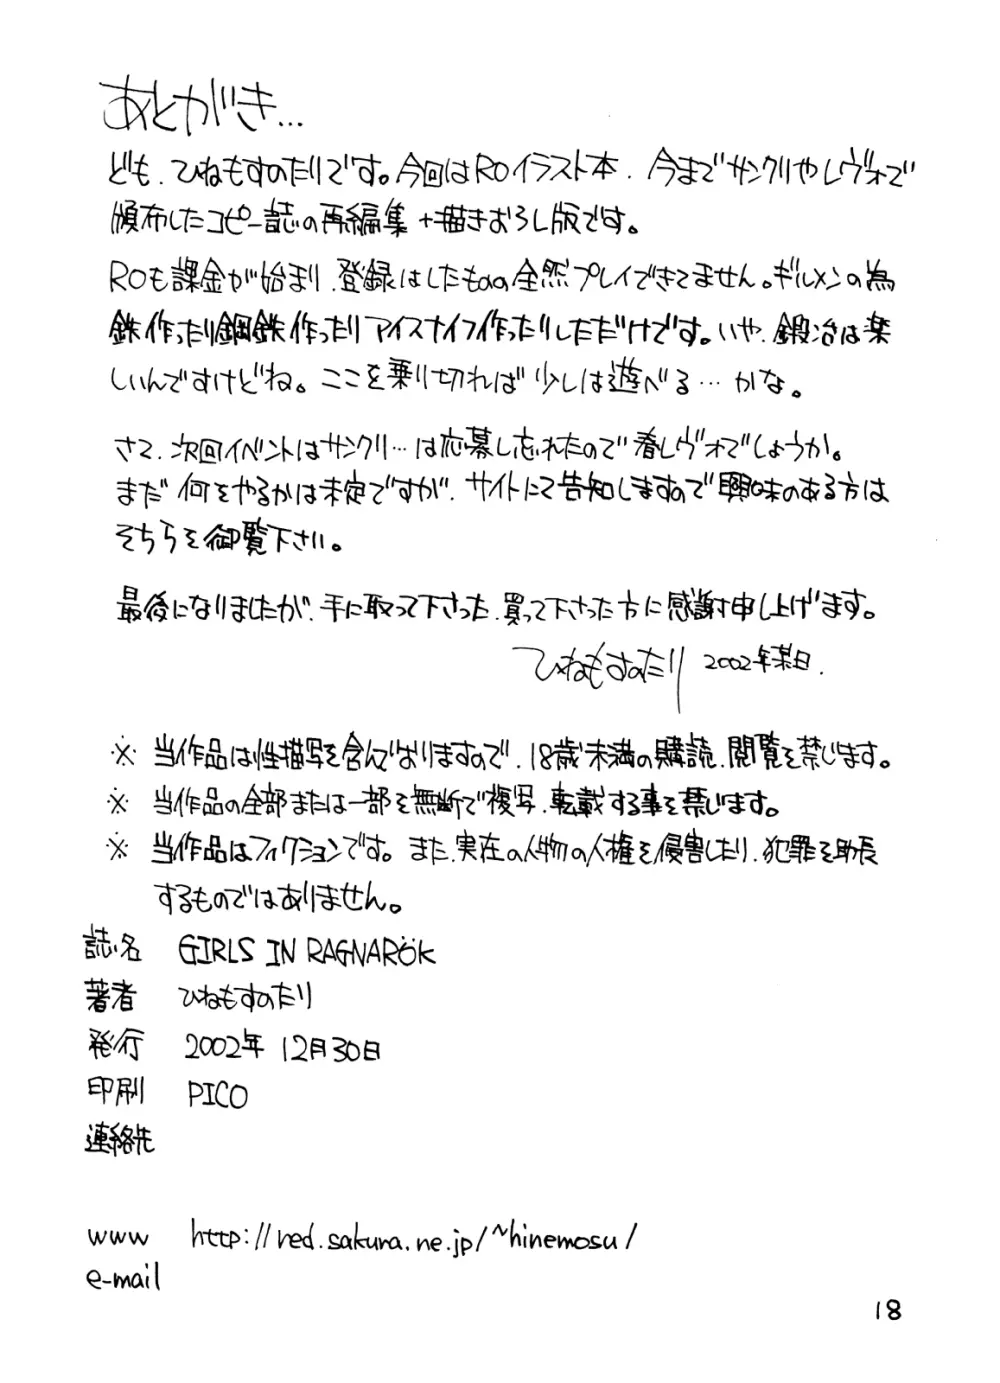 あとがき…
ども、ひねもすのたりです。今回はROイラスト本、今までサンクリやレヴォで
頒布したコピー誌の再編集+描きおろし版です。
ROも課金が始まり、登録はしたものの全然プレイできてません。ギルメンの為
鉄作ったり鋼鉄作ったりアイスナイフ作ったりしただけです。いや、鍛冶は楽
しいんですけどね。ここを乗り切れば少しは遊べる…かな。
さて、次回イベントはサンクリ…は応募し忘れたので春レヴォでしょうか。
まだ何をやるかは未定ですが、サイトにて告知しますので興味のある方は
そちらを御覧下さい。
最後になりましたが、手に取って下さった、買って下さった方に感謝申し上げます。
ひねもすのたり 2002年某日.
※ 当作品は性描写を含んでおりますので、18歳未満の購読、閲覧を禁じます。
※ 当作品の全部または一部を無断で複写、転載する事を禁じます。
※ 当作品はフィクションです。また、実在の人物の人権を侵害したり、犯罪を助長
するものではありません。
誌名 GIRLS IN RAGNARÖK
著者 ひねもすのたり
発行 2002年 12月30日
印刷 PICO
連絡先
www http://red.sakura.ne.jp/~hinemosu/
e-mail
18